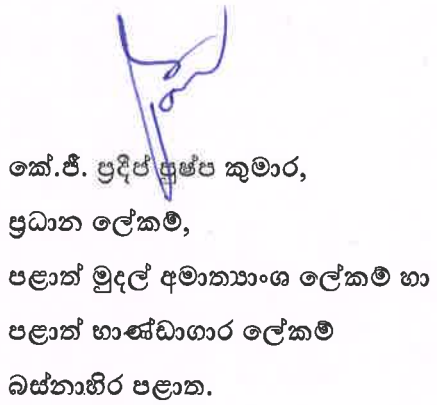 කේ.ජී. ප්‍රදීප් පුෂ්ප කුමාර,
ප්‍රධාන ලේකම්,
පළාත් මුදල් අමාත්‍යාංශ ලේකම් හා
පළාත් භාණ්ඩාගාර ලේකම්
බස්නාහිර පළාත.